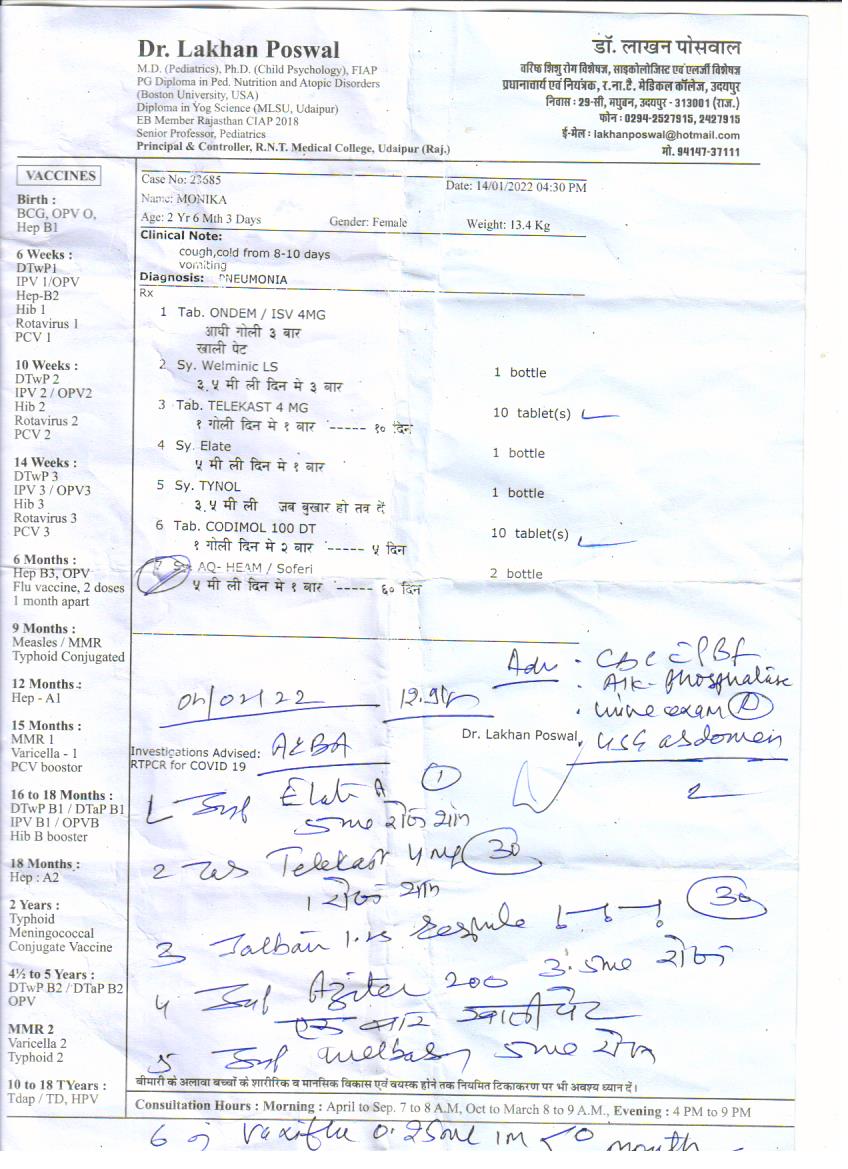 Dr. Lakhan Poswal
M.D. (Pediatrics), Ph.D. (Child Psychology), FIAP
PG Diploma in Ped. Nutrition and Atopic Disorders
(Boston University, USA)
Diploma in Yog Science (MLSU, Udaipur)
EB Member Rajasthan CIAP 2018
Senior Professor, Pediatrics
Principal & Controller, R.N.T. Medical College, Udaipur (Raj.)
डॉ. लाखन पोसवाल
वरिष्ठ शिशु रोग विशेषज्ञ, साइकोलोजिस्ट एवं एलर्जी विशेषज्ञ
प्रधानाचार्य एवं नियंत्रक, र.ना.टै. मेडिकल कॉलेज, उदयपुर
निवास : 29-सी, मधुबन, उदयपुर - 313001 (राज.)
फोन : 0294-2527915, 2427915
ई-मेल : lakhanposwal@hotmail.com
मो. 94147-37111
VACCINES
Birth :
BCG, OPV O,
Hep B1
6 Weeks :
DTwP1
IPV 1/OPV
Hep-B2
Hib 1
Rotavirus 1
PCV 1
10 Weeks :
DTwP 2
IPV 2 / OPV2
Hib 2
Rotavirus 2
PCV 2
14 Weeks :
DTwP 3
IPV 3 / OPV3
Hib 3
Rotavirus 3
PCV 3
6 Months :
Hep B3, OPV
Flu vaccine, 2 doses
1 month apart
9 Months :
Measles / MMR
Typhoid Conjugated
12 Months :
Hep - A1
15 Months :
MMR 1
Varicella - 1
PCV boostor
16 to 18 Months :
DTwP B1 / DTaP B1
IPV B1 / OPVB
Hib B booster
18 Months :
Hep : A2
2 Years :
Typhoid
Meningococcal
Conjugate Vaccine
4½ to 5 Years :
DTwP B2 / DTaP B2
OPV
MMR 2
Varicella 2
Typhoid 2
10 to 18 TYears :
Tdap / TD, HPV
Case No: 23685 Date: 14/01/2022 04:30 PM
Name: MONIKA
Age: 2 Yr 6 Mth 3 Days Gender: Female Weight: 13.4 Kg
Clinical Note:
cough,cold from 8-10 days
vomiting
Diagnosis: PNEUMONIA
Rx
1 Tab. ONDEM / ISV 4MG
आधी गोली ३ बार
खाली पेट
2 Sy. Welminic LS 1 bottle
३.५ मी ली दिन मे ३ बार
3 Tab. TELEKAST 4 MG 10 tablet(s)
१ गोली दिन मे १ बार ----- १० दिन
4 Sy. Elate 1 bottle
५ मी ली दिन मे १ बार
5 Sy. TYNOL 1 bottle
३.५ मी ली जब बुखार हो तब दें
6 Tab. CODIMOL 100 DT 10 tablet(s)
१ गोली दिन मे २ बार ----- ५ दिन
7 Sy. AQ- HEAM / Soferi 2 bottle
५ मी ली दिन मे १ बार ----- ६० दिन
Adv. CBC PBF
Alk-phosphatase
urine exam R
USG abdomen
Dr. Lakhan Poswal
Investigations Advised:
RTPCR for COVID 19
AEBA
1 Elate A 1
5ml रोज शाम
2 Telekast 4mg 30
1 रोज शाम
3 Respule 30
5ml रोज
4 200
एक बार खाली पेट
5 5ml रोज
बीमारी के अलावा बच्चों के शारीरिक व मानसिक विकास एवं वयस्क होने तक नियमित टिकाकरण पर भी अवश्य ध्यान दें।
Consultation Hours : Morning : April to Sep. 7 to 8 A.M, Oct to March 8 to 9 A.M., Evening : 4 PM to 9 PM
6 Vaxiflu 0.25ml im month